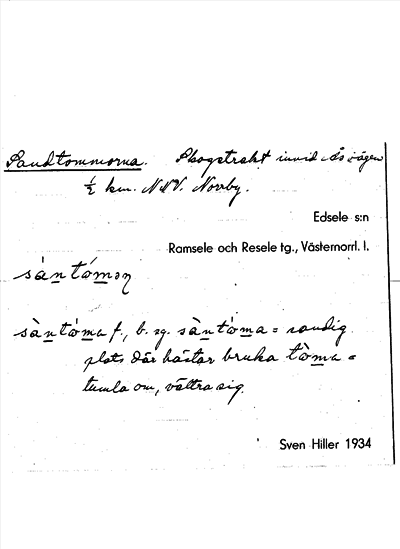 Sandtommorna. Skogstrakt invid Åsvägen
½ km. NNV. Norrby.
Edsele s:n
Ramsele och Resele tg., Västernorrl. l.
sàntómaη
sàntòma f., b. sg. sàntòma = sandig
plats där hästar bruka tòma =
tumla om, vältra sig.
Sven Hiller 1934